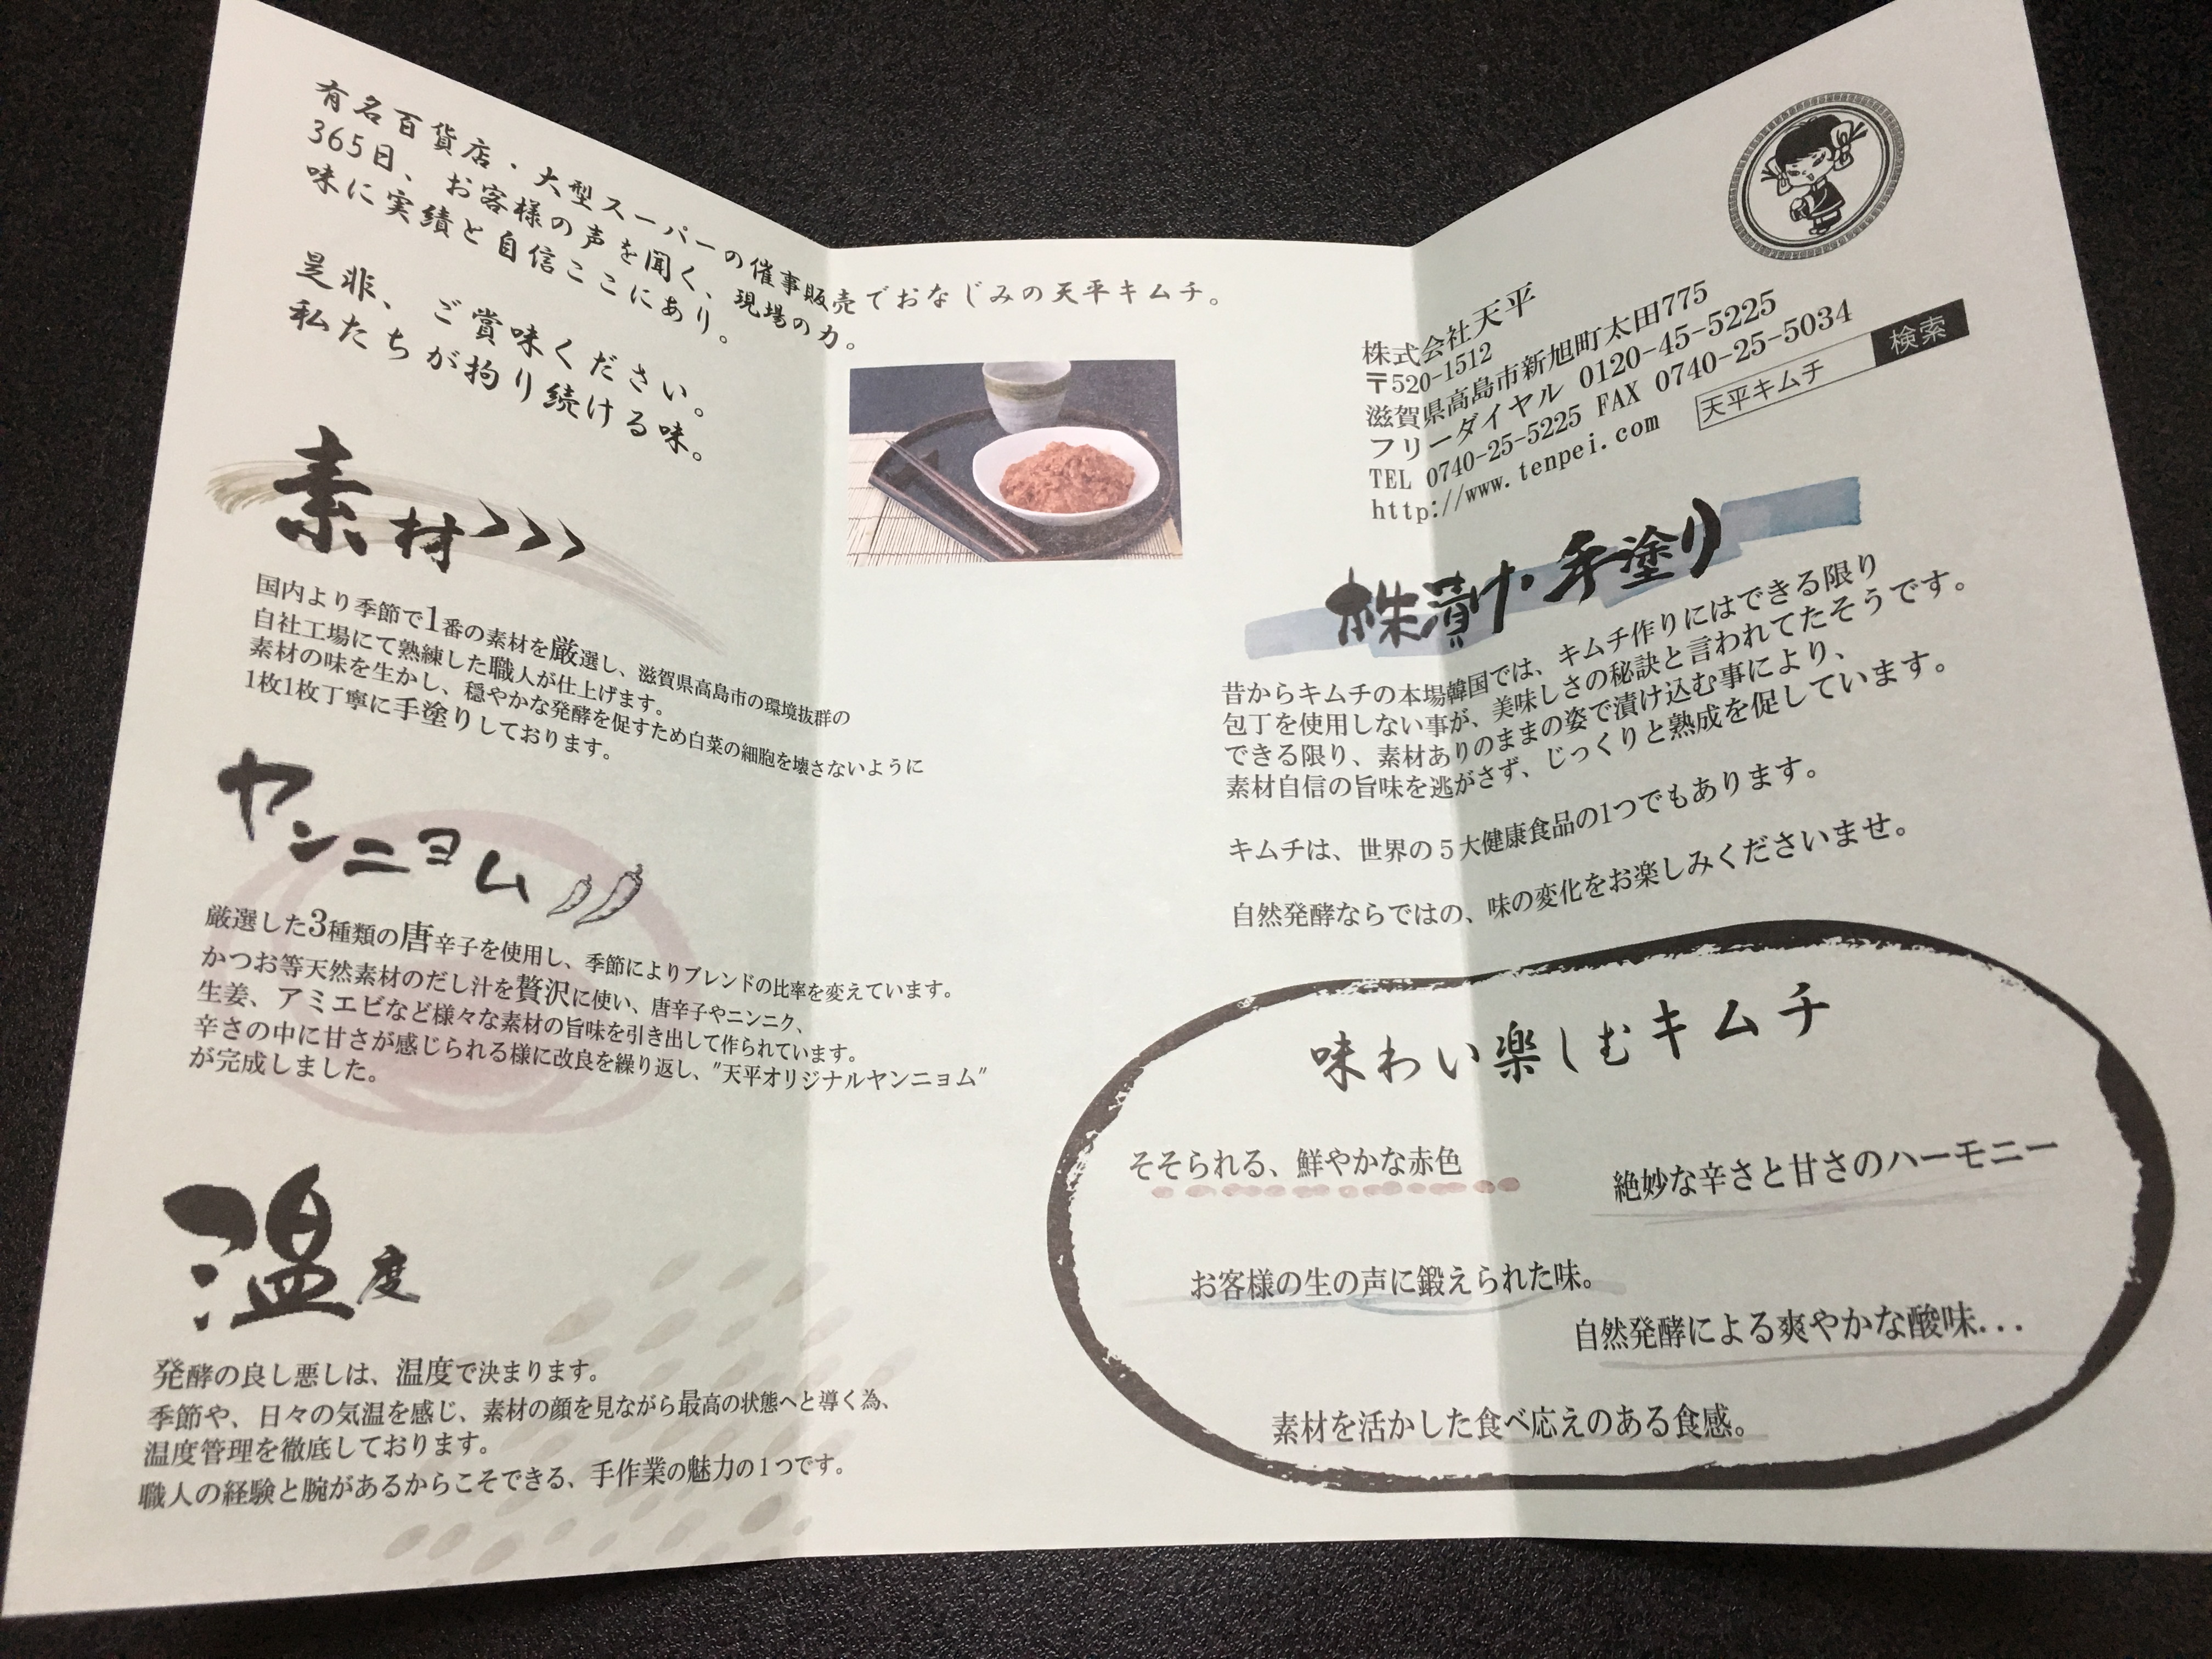 有名百貨店・大型スーパーの催事販売でおなじみの天平キムチ。
365日、お客様の声を聞く、現場の力。
味に実績と自信ここにあり。
是非、ご賞味ください。
私たちが拘り続ける味。
素材>>>
国内より季節で1番の素材を厳選し、滋賀県高島市の環境抜群の
自社工場にて熟練した職人が仕上げます。
素材の味を生かし、穏やかな発酵を促すため白菜の細胞を壊さないように
1枚1枚丁寧に手塗りしております。
ヤンニョム
厳選した3種類の唐辛子を使用し、季節によりブレンドの比率を変えています。
かつお等天然素材のだし汁を贅沢に使い、唐辛子やニンニク、
生姜、アミエビなど様々な素材の旨味を引き出して作られています。
辛さの中に甘さが感じられる様に改良を繰り返し、"天平オリジナルヤンニョム"
が完成しました。
温度
発酵の良し悪しは、温度で決まります。
季節や、日々の気温を感じ、素材の顔を見ながら最高の状態へと導く為、
温度管理を徹底しております。
職人の経験と腕があるからこそできる、手作業の魅力の1つです。
株式会社天平
〒520-1512
滋賀県高島市新旭町太田775
フリーダイヤル 0120-45-5225
TEL 0740-25-5225 FAX 0740-25-5034
http://www.tenpei.com
天平キムチ 検索
株漬け・手塗り
昔からキムチの本場韓国では、キムチ作りにはできる限り
包丁を使用しない事が、美味しさの秘訣と言われてたそうです。
できる限り、素材ありのままの姿で漬け込む事により、
素材自信の旨味を逃がさず、じっくりと熟成を促しています。
キムチは、世界の5大健康食品の1つでもあります。
自然発酵ならではの、味の変化をお楽しみくださいませ。
味わい楽しむキムチ
そそられる、鮮やかな赤色
絶妙な辛さと甘さのハーモニー
お客様の生の声に鍛えられた味。
自然発酵による爽やかな酸味...
素材を活かした食べ応えのある食感。